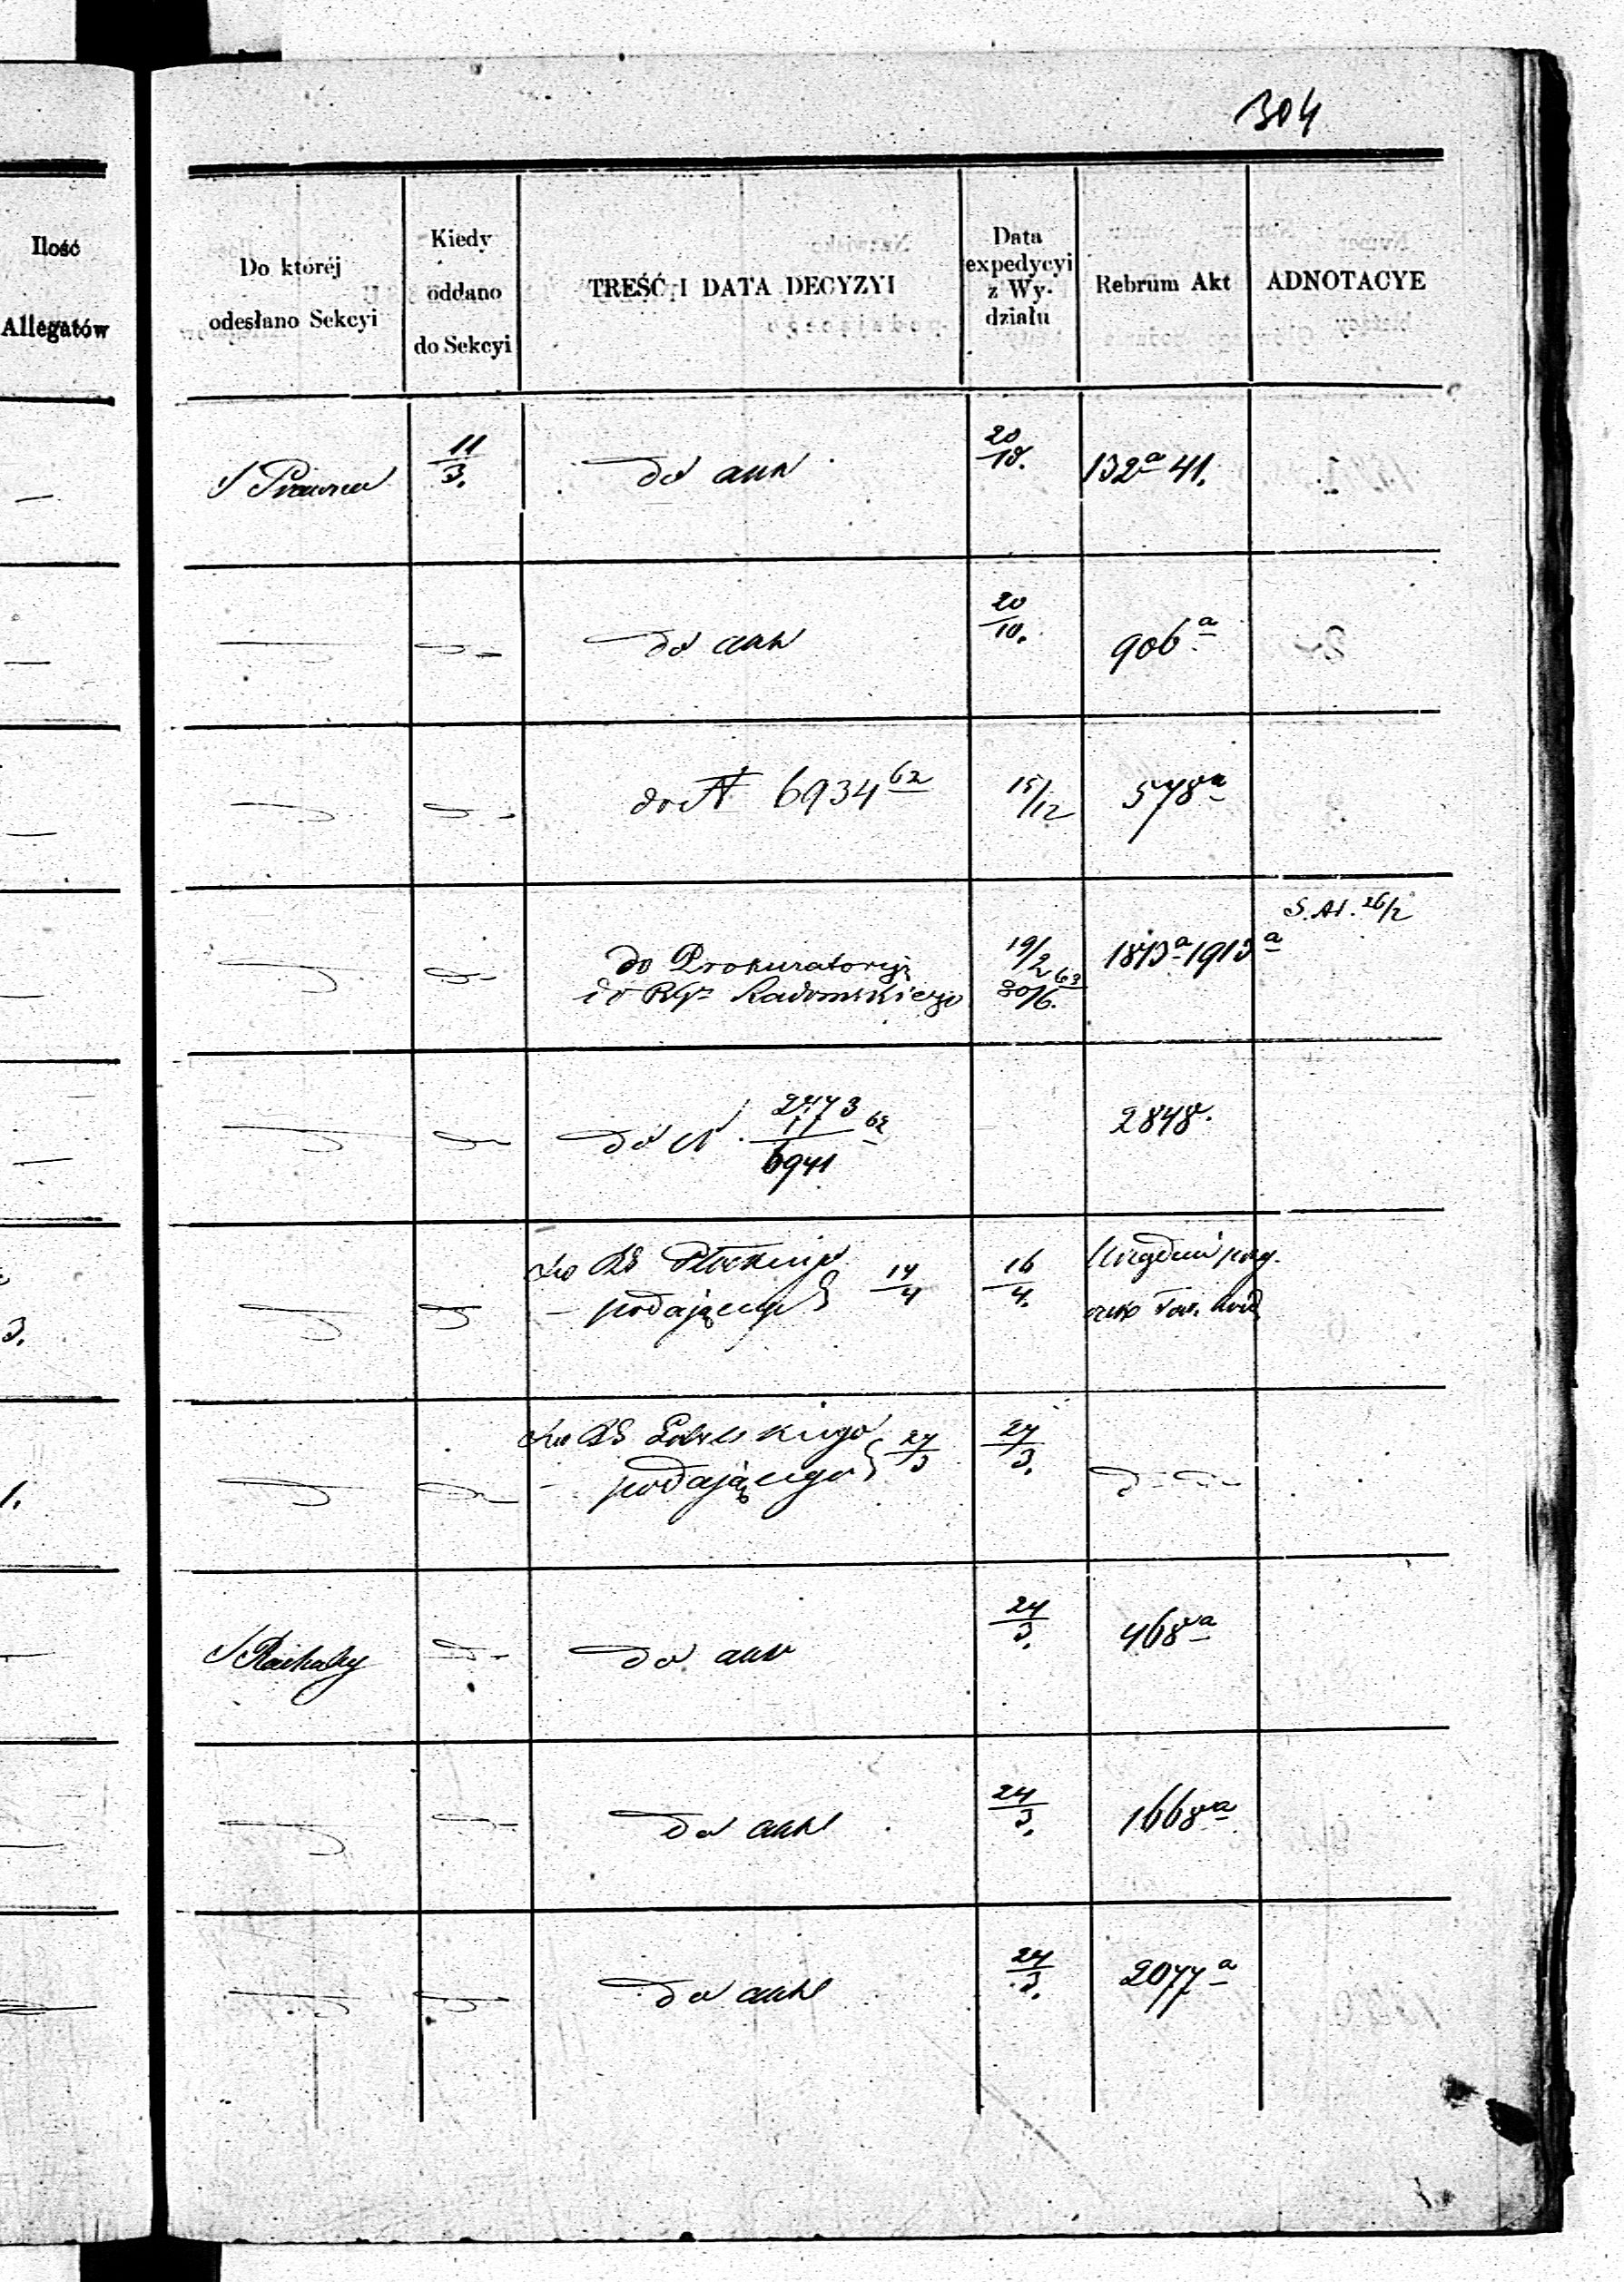 304
Ilość
Allegatów
Do któréj
odesłano Sekcyi
Kiedy
oddano
do Sekcyi
TREŚĆ I DATA DECYZYI
Data
expedycyi
z Wy-
działu
Rebrum Akt
ADNOTACYE
S Prawna
11/3.
do akt
20/10.
132ª 41.
do akt
20/10.
906ª
do N 6934 62
15/12
578ª
do Prokuratoryi
do RGo Radomskiego
19/2 63
30/6.
1813ª 1913ª
S. At. 26/2
do N. 2773/6941 62
2848.
3.
do RG Płockiego
podającego
14/4
16/4.
1.
do RG Lubelskiego
podającego
27/3
27/3.
S Rachuby
do akt
24/3.
468ª
do akt
24/3.
1668ª
do akt
24/3.
2077ª